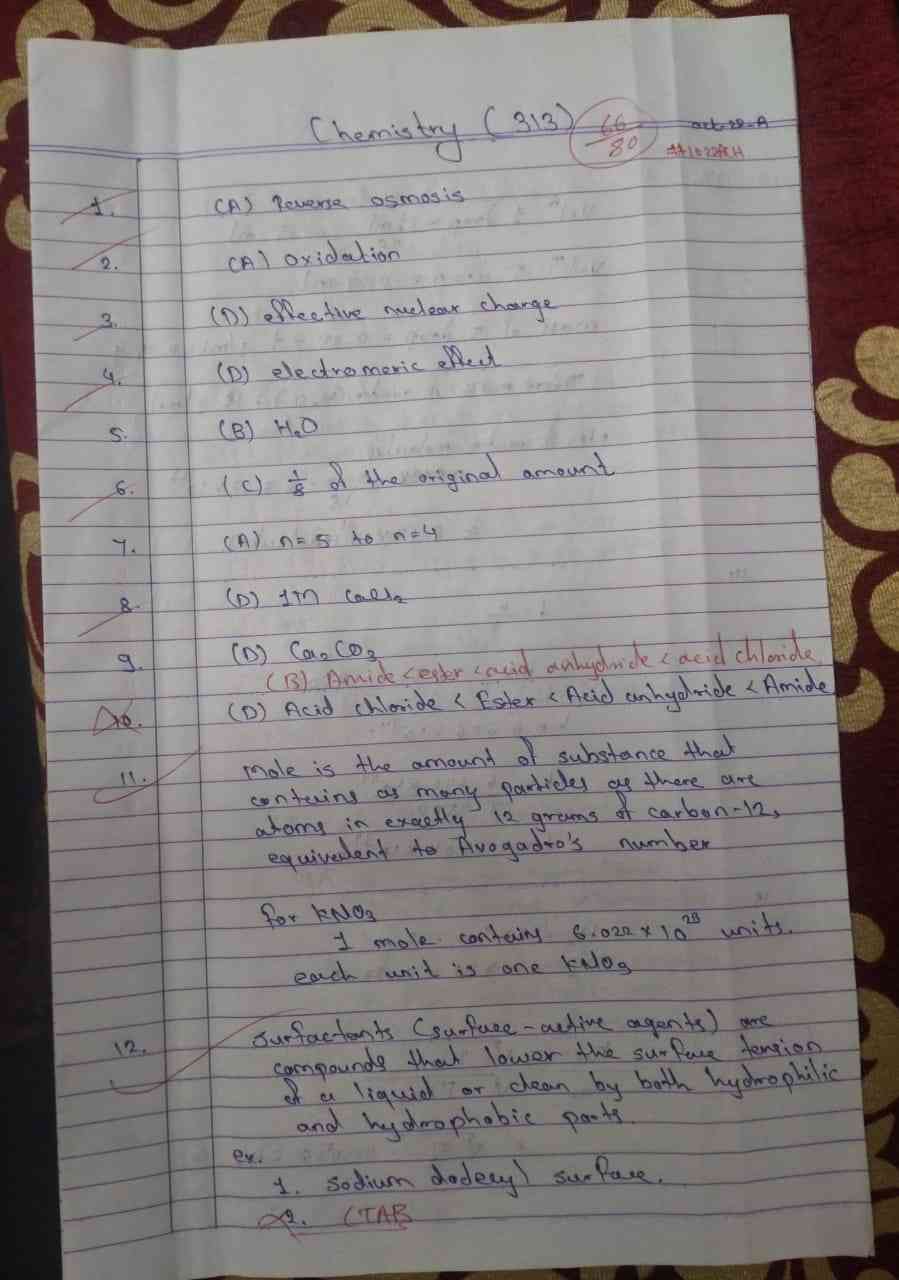 Chemistry (313) 66/80 oct-22-A
1. (A) Reverse osmosis
2. (A) oxidation
3. (D) effective nuclear charge
4. (D) electromeric effect
5. (B) H₂O
6. (C) 1/8 of the original amount
7. (A) n=5 to n=4
8. (D) 1m CaCl₂
9. (D) Ca₂CO₃
(B) Amide < ester < acid anhydride < acid chloride
10. (D) Acid chloride < Ester < Acid anhydride < Amide
11. mole is the amount of substance that
contains as many particles as there are
atoms in exactly 12 grams of carbon-12,
equivalent to Avogadro's number
for KNO₃
1 mole contains 6.022 × 10²³ units.
each unit is one KNO₃
12. Surfactants (surface-active agents) are
compounds that lower the surface tension
of a liquid or clean by both hydrophilic
and hydrophobic parts.
ex.
1. sodium dodecyl surface.
2. CTAB